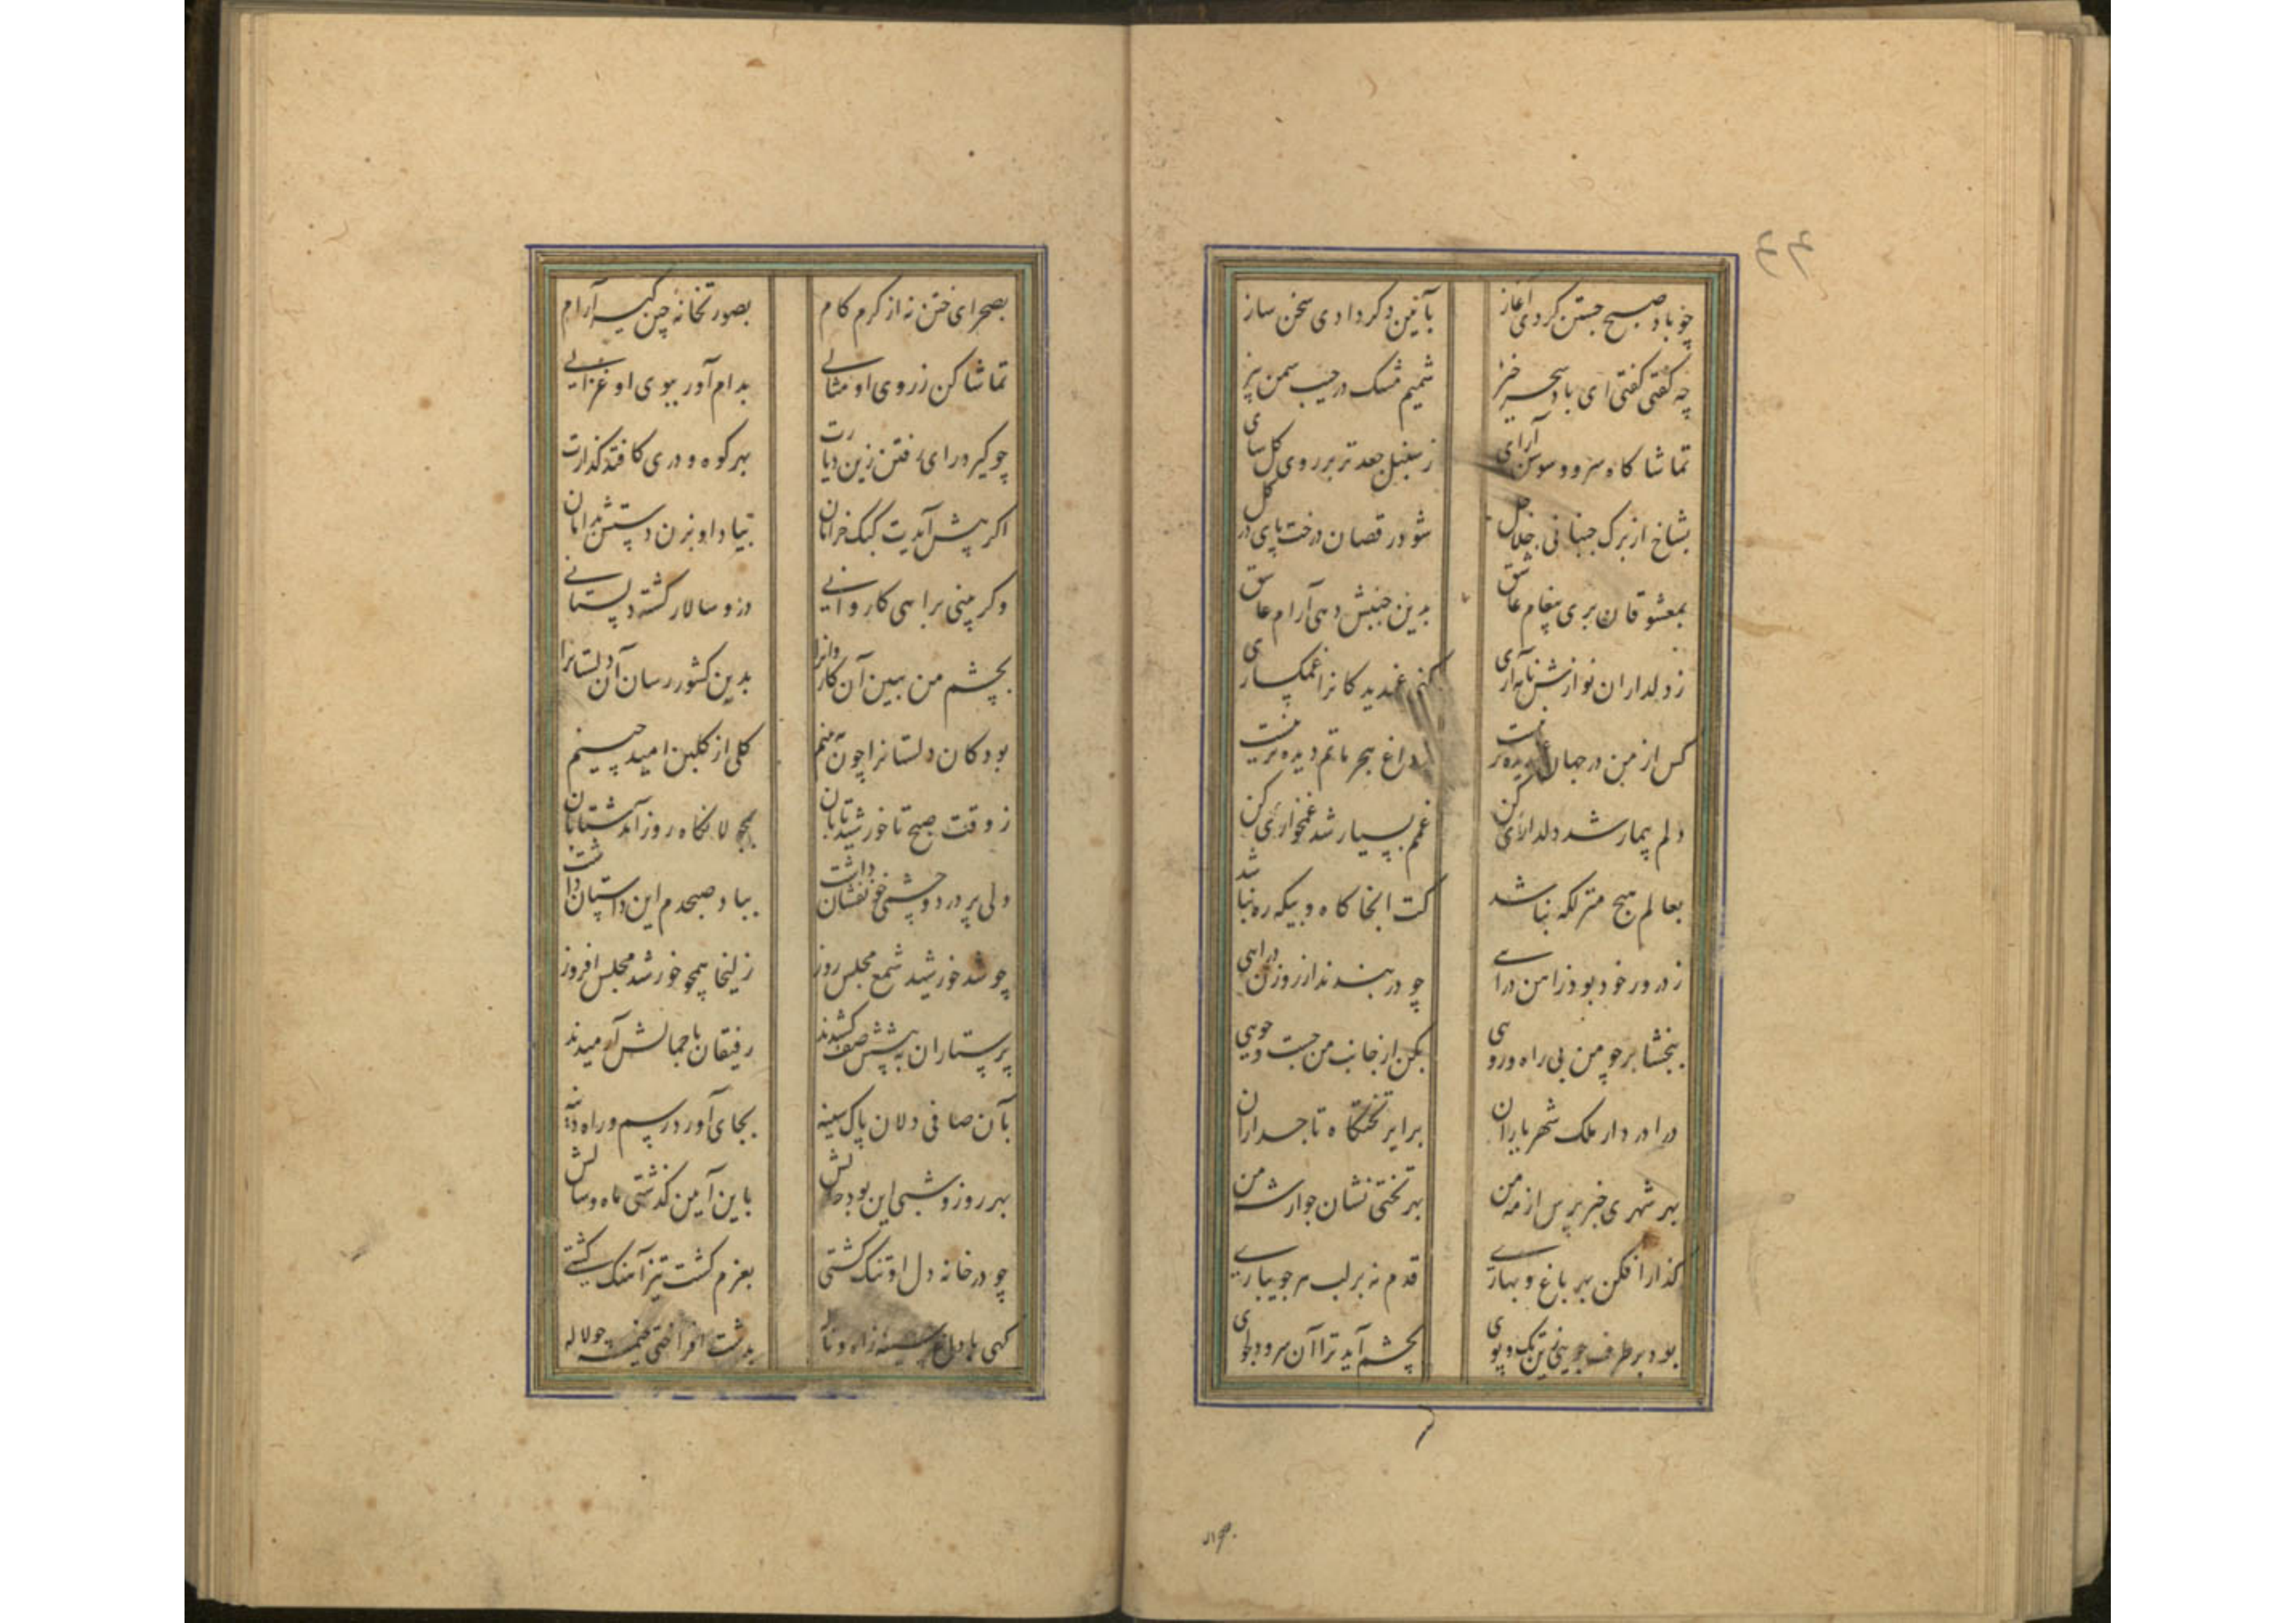 ۴۴
چو باد صبح جستن کردی آغاز بآئین دکر دادی سخن ساز
چه گفتی گفتی ای باد سحر خیز شمیم مشک در جیب سمن بیز
تماشا کاه سرو و سوسن آرای ز سنبل جعد تر بر روی کل سای
بشاخ از برک جنبانی جلاجل شود رقصان درخت پای در کل
بمعشوقان بری پیغام عاشق بدین جنبش دهی آرام عاشق
ز دلداران نوازش نامه آری کنی غمدیدکانرا غمکساری
کس از من در جهان غمدیده تر نیست ز داغ هجر ماتم دیده تر نیست
دلم بیمار شد دلداریی کن غمم بسیار شد غمخواریی کن
بعالم هیچ منزلکه نباشد کت آنجا کاه و بیکه ره نباشد
ز در ور خود بود ز اهن درآیی چو در بندند از روزن درآیی
ببخشا بر چو من بی راه و رویی بکن از جانب من جست و جویی
درا در دار ملک شهریاران برابر تختکاه تاجداران
بهر شهری خبر پرس از مه من بهر تختی نشان جو از شه من
کذار افکن بهر باغ و بهاری قدم نه بر لب هر جویباری
بود بر طرف جویی زین تک و پوی بچشم آید ترا آن سرو دلجوی
بصحرای
بصحرای ختن نه از کرم کام بصورتخانه چین کیر آرام
تماشا کن ز روی او مثالی بدام آور ببوی او غزالی
چو کیرد رای رفتن زین دیارت بهر کوه و دری کافتد کذارت
اکر پیش آیدت کبک خرامان بیاد او بزن دستش بدامان
وکر بینی براهی کاروانی درو سالار کشته دلستانی
بچشم من ببین آن کاروانرا بدین کشور رسان آن دلستانرا
بود کان دلستانرا چون ببینم کلی از کلبن امید چینم
ز وقت صبح تا خورشید تابان بجولانکاه روز آمد شتابان
دلی پر درد و چشمی خونفشان داشت بباد صبحدم این داستان داشت
چو شد خورشید شمع مجلس روز زلیخا همچو خورشد مجلس افروز
پرستاران به پیشش صف کشیدند رفیقان با جمالش آرمیدند
بآن صافی دلان پاک سینه بجای آورد رسم و راه دینه
بهر روز و شبی این بود حالش باین آیین کذشتی ماه و سالش
چو در خانه دل او تنک کشتی بعزم کشت تیز آهنک کشتی
کهی با داغ سینه ز آه و ناله بدشت افراختی خیمه چو لاله